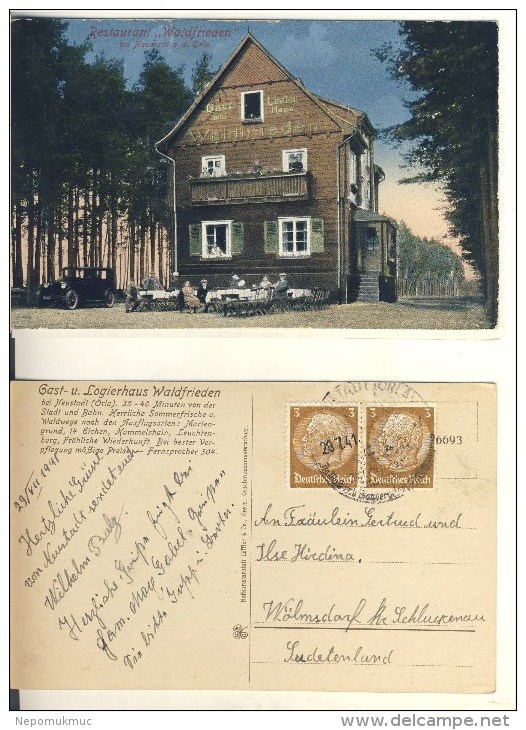 Restaurant „Waldfrieden"
bei Neustadt a. d. Orla
Gast- u. Logier Haus
Waldfrieden
Gast- u. Logierhaus Waldfrieden
bei Neustadt (Orla). 35-40 Minuten von der
Stadt und Bahn. Herrliche Sommerfrische u.
Waldwege nach den Ausflugsorten: Marien-
grund, 14 Eichen, Hummelshain, Leuchten-
burg, Fröhliche Wiederkunft. Bei bester Ver-
pflegung mäßige Preise. - Fernsprecher 304.
29/VII 1941
Hertzliche Grüsse
von Neustadt sendet euch
Wilhelm
Herzliche Grüße fügt bei
Fam.
3 3
Deutsches Reich Deutsches Reich
28.7.41
26693
An Fräulein Gertrud und
Ilse Hirdina,
Wölmsdorf Kr. Schluckenau
Sudetenland
Nepomukmuc
www.delcampe.net